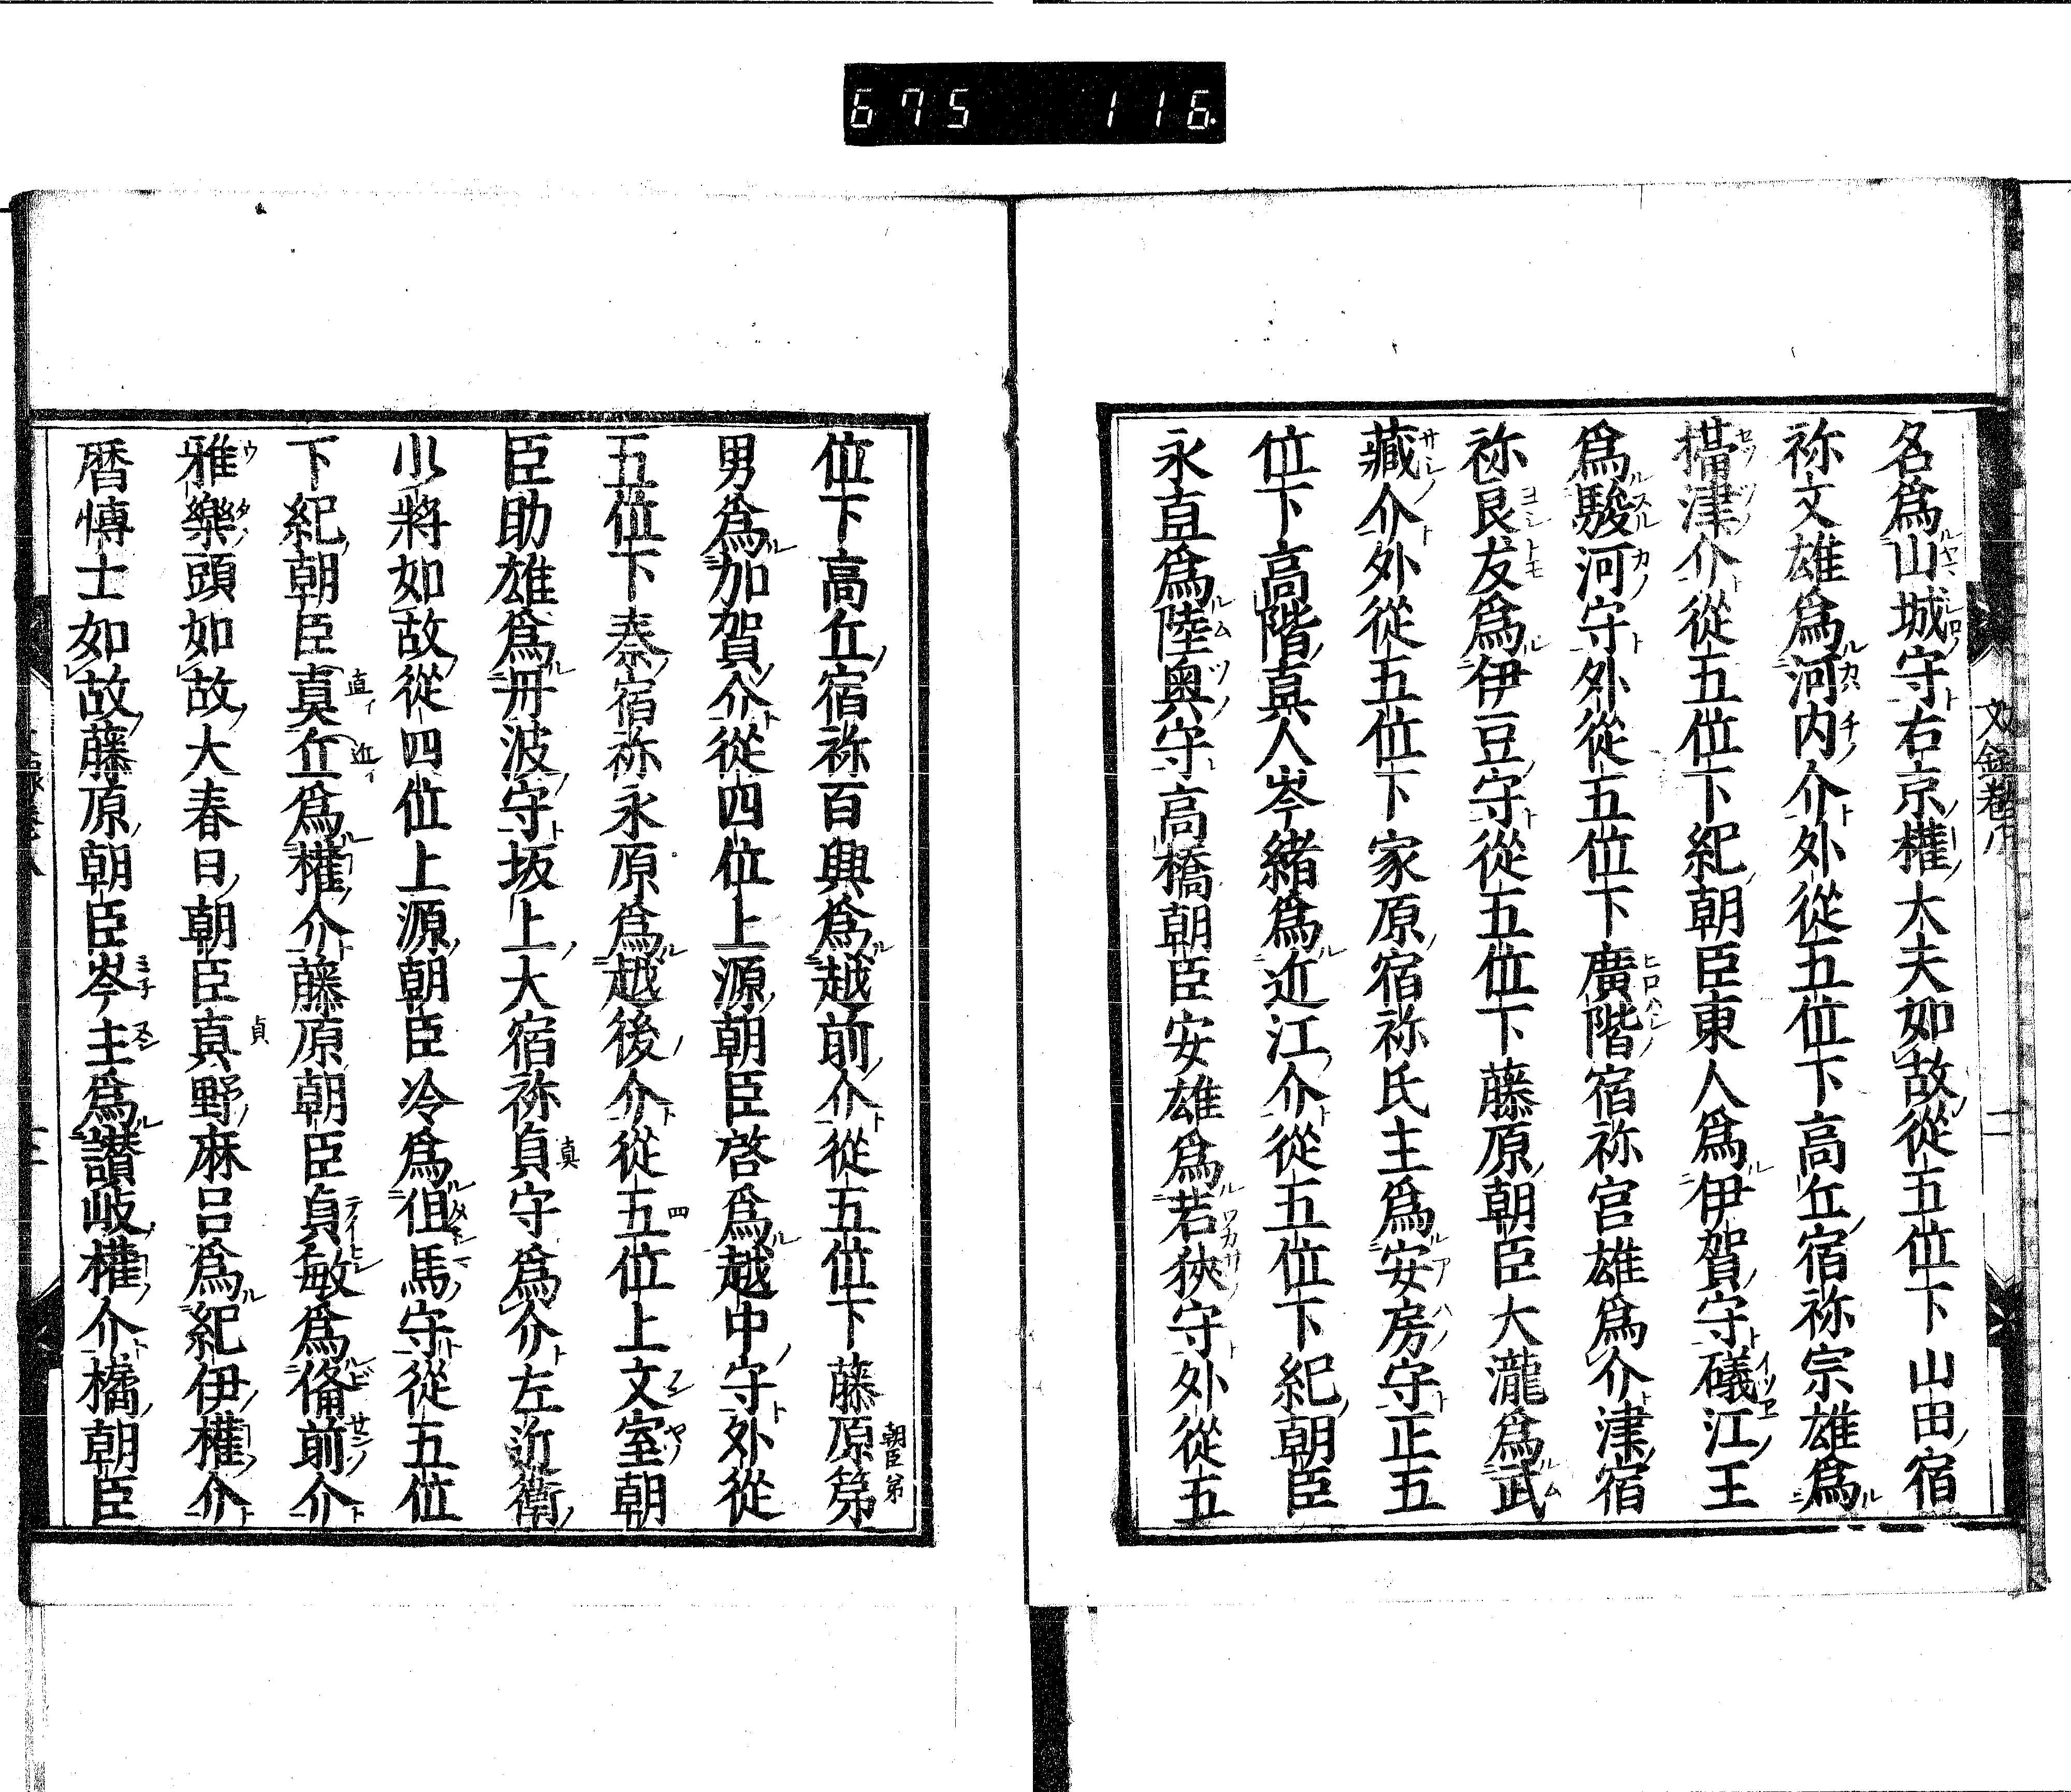 675 116
名爲山城守右京權大夫如故從五位下山田宿
祢文雄爲河内介外從五位下高丘宿祢宗雄爲
攝津介從五位下紀朝臣東人爲伊賀守礒江王
爲駿河守外從五位下廣階宿祢官雄爲介津宿
祢良友爲伊豆守從五位下藤原朝臣大瀧爲武
藏介外從五位下家原宿祢氏主爲安房守正五
位下高階真人岑緒爲近江介從五位下紀朝臣
永直爲陸奥守高橋朝臣安雄爲若狹守外從五
位下高丘宿祢百興爲越前介從五位下藤原第
男爲加賀介從四位上源朝臣啓爲越中守外從
五位下秦宿祢永原爲越後介從五位上文室朝
臣助雄爲丹波守坂上大宿祢貞守爲介左近衛
少將如故從四位上源朝臣冷爲但馬守從五位
下紀朝臣真丘爲權介藤原朝臣貞敏爲備前介
雅樂頭如故大春日朝臣真野麻呂爲紀伊權介
曆博士如故藤原朝臣岑主爲讃岐權介橘朝臣